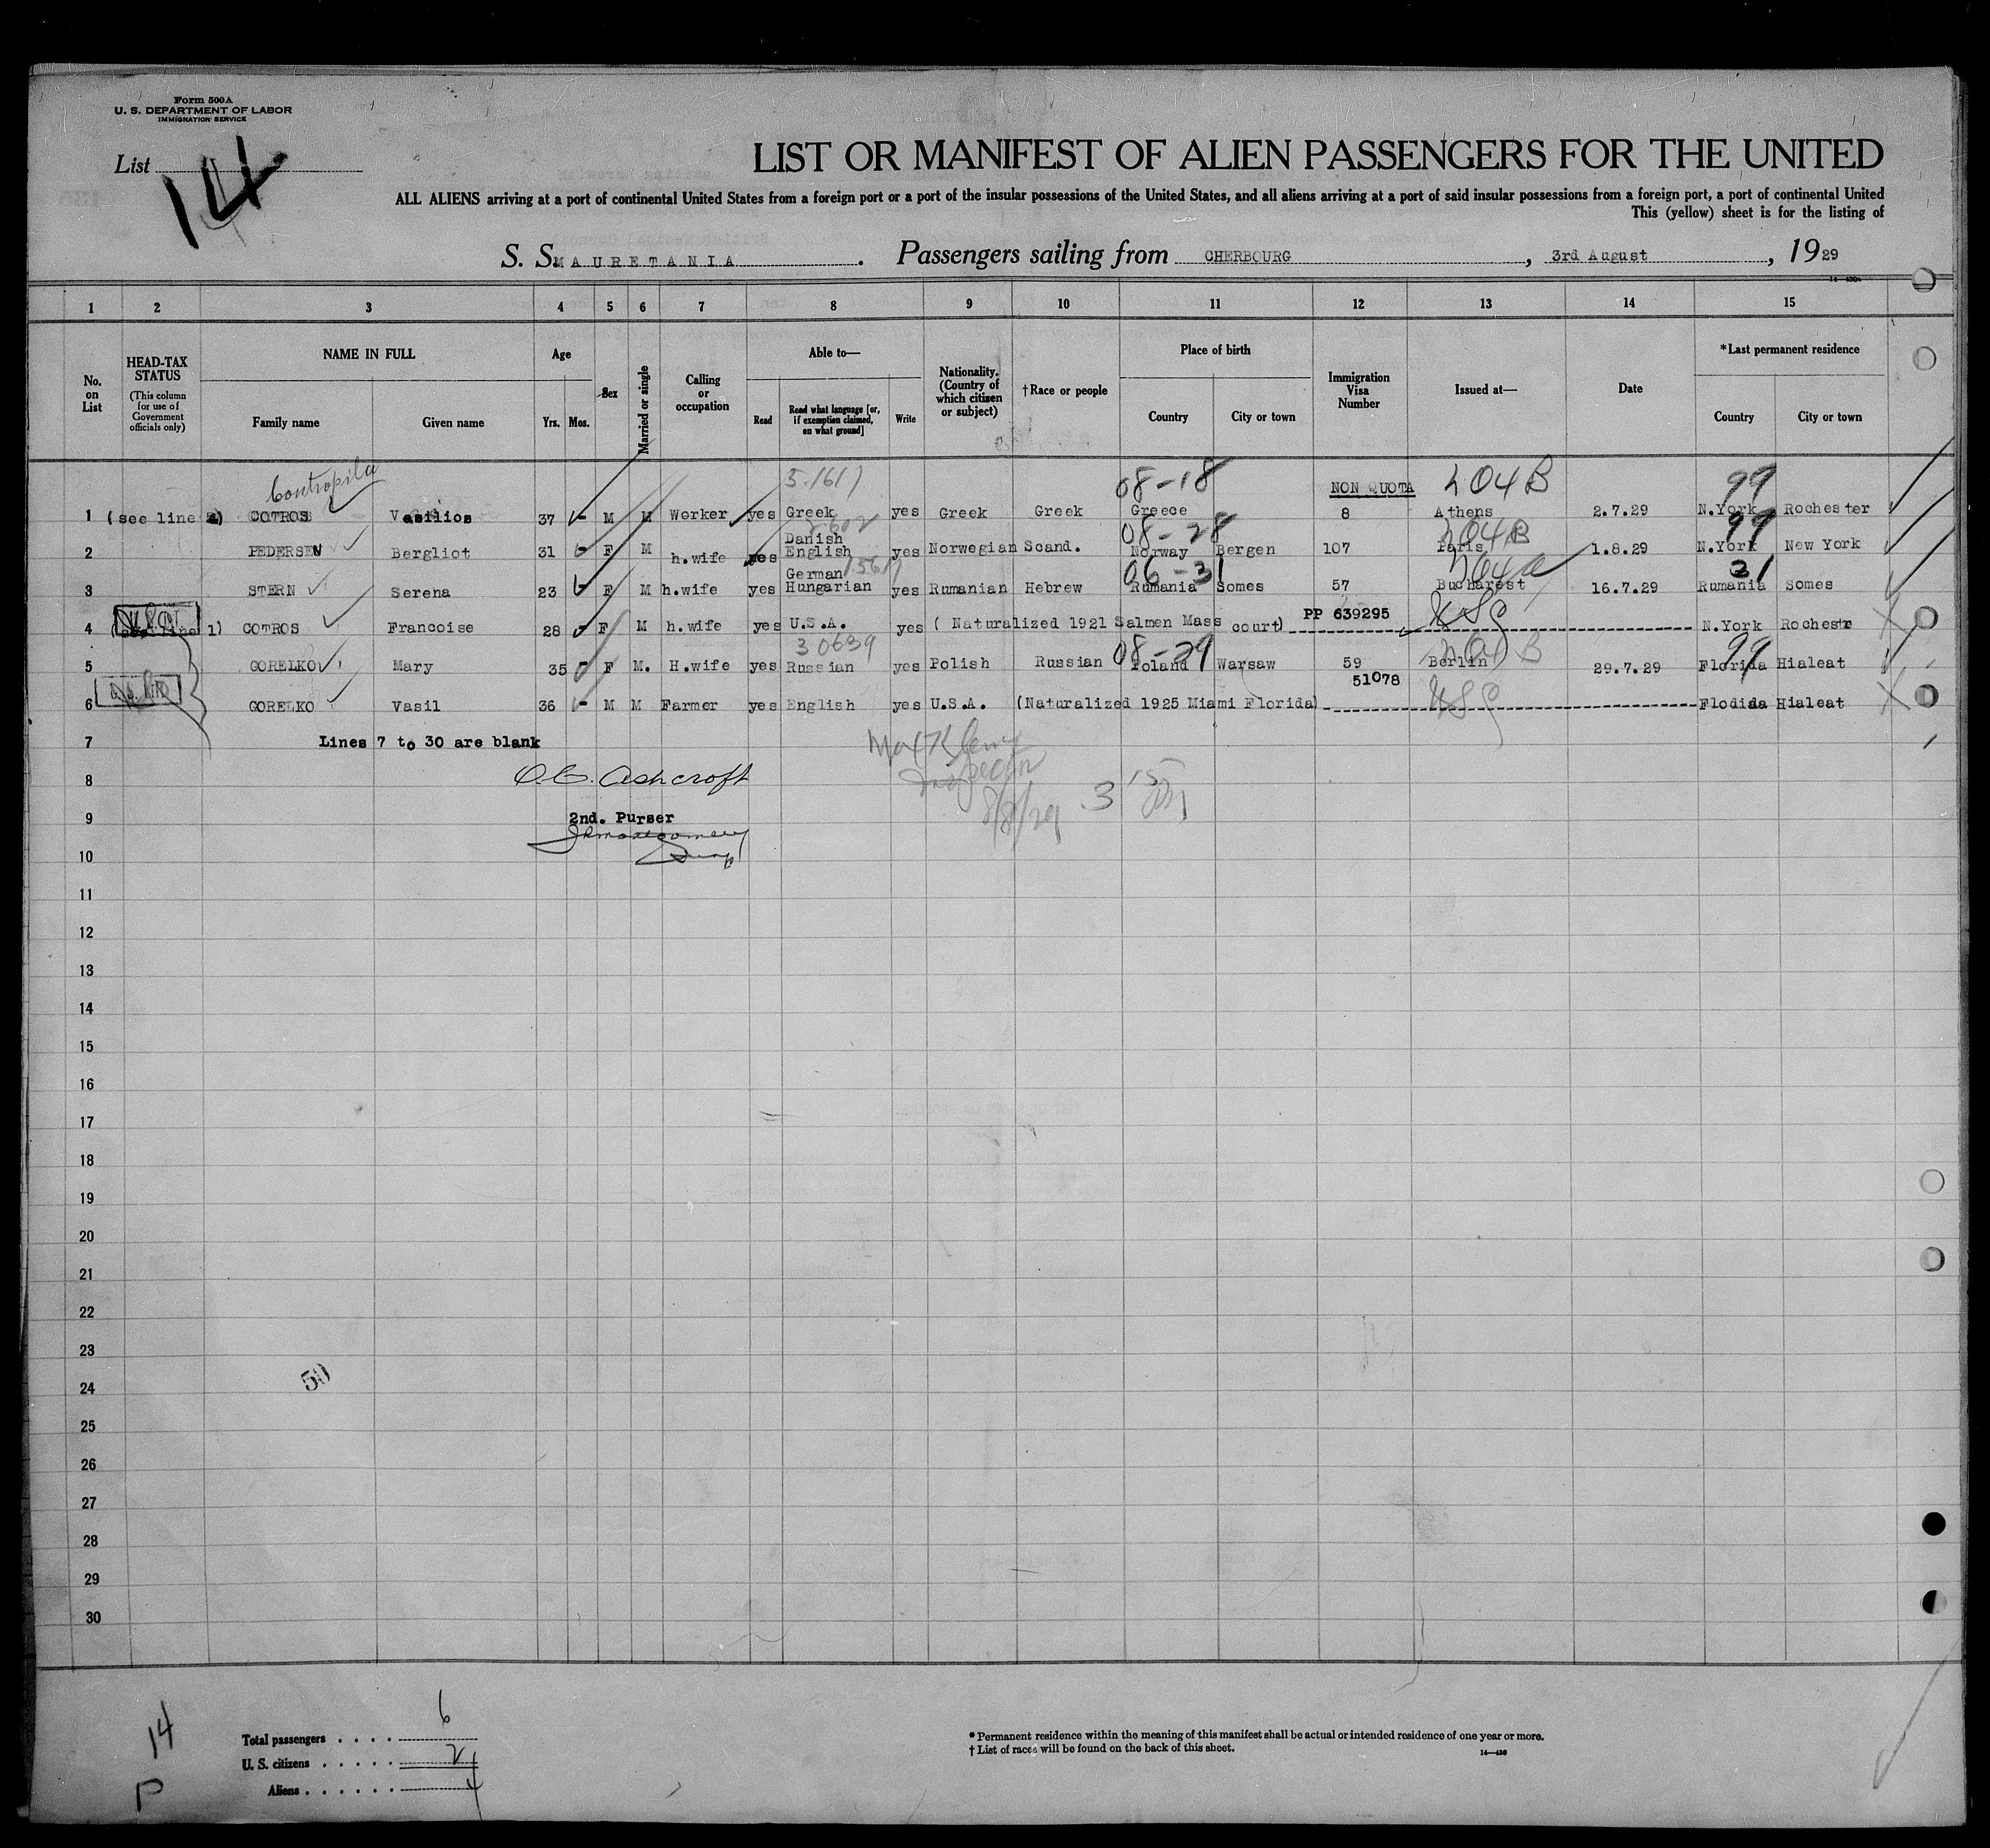 Form 500A
U. S. DEPARTMENT OF LABOR
IMMIGRATION SERVICE
List 14
LIST OR MANIFEST OF ALIEN PASSENGERS FOR THE UNITED
ALL ALIENS arriving at a port of continental United States from a foreign port or a port of the insular possessions of the United States, and all aliens arriving at a port of said insular possessions from a foreign port, a port of continental United
This (yellow) sheet is for the listing of
S. S. MAURETANIA . Passengers sailing from CHERBOURG , 3rd August , 1929
1 2 3 4 5 6 7 8 9 10 11 12 13 14 15
No. on List
HEAD-TAX STATUS
(This column for use of Government officials only)
NAME IN FULL
Family name Given name
Age
Yrs. Mos.
Sex
Married or single
Calling or occupation
Able to—
Read
Read what language [or, if exemption claimed, on what ground]
Write
Nationality. (Country of which citizen or subject)
†Race or people
Place of birth
Country City or town
Immigration Visa Number
Issued at—
Date
*Last permanent residence
Country City or town
5-1617 08-18 NON QUOTA 204B 99
1 (see line 4) COTROS Vasilios 37 M M Worker yes Greek yes Greek Greek Greece 8 Athens 2.7.29 N.York Rochester
08-28 204B 99
2 PEDERSEN Bergliot 31 F M h.wife yes Danish English yes Norwegian Scand. Norway Bergen 107 Paris 1.8.29 N.York New York
06-31 31
3 STERN Serena 23 F M h.wife yes German Hungarian yes Rumanian Hebrew Rumania Somes 57 Bucharest 16.7.29 Rumania Somes
4 (see line 1) COTROS Francoise 28 F M h.wife yes U.S.A. yes ( Naturalized 1921 Salmen Mass court) PP 639295 USC N.York Rochestr
30639 08-29 204B 99
5 GORELKO Mary 35 F M. H.wife yes Russian yes Polish Russian Poland Warsaw 59 Berlin 29.7.29 Florida Hialeat
51078
6 GORELKO Vasil 36 M M Farmer yes English yes U.S.A. (Naturalized 1925 Miami Florida) USC Flodida Hialeat
7 Lines 7 to 30 are blank
8 O.C. Ashcroft
Inspector
8/8/29
9 2nd. Purser
10
11
12
13
14
15
16
17
18
19
20
21
22
23
50
24
25
26
27
28
29
30
14
P
Total passengers . . . . 6
U. S. citizens . . . . . 2
Aliens . . . . . . 4
* Permanent residence within the meaning of this manifest shall be actual or intended residence of one year or more.
† List of races will be found on the back of this sheet.
14—430